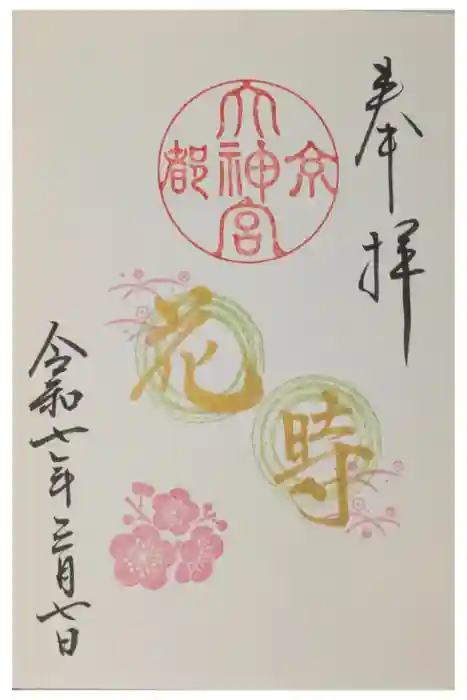 奉拝
京都大神宮
花時
令和七年三月七日